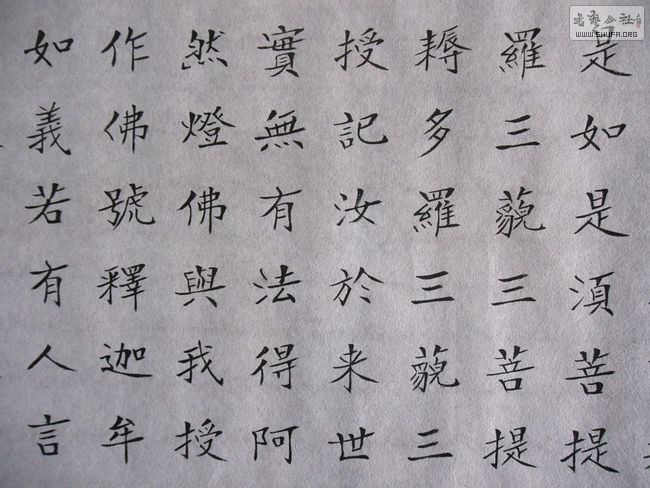 是如是湏菩提
羅三藐三菩提
耨多羅三藐三
授記汝於来世
實無有法得阿
然燈佛與我授
作佛號釋迦牟
如義若有人言
WWW.SHUFA.ORG